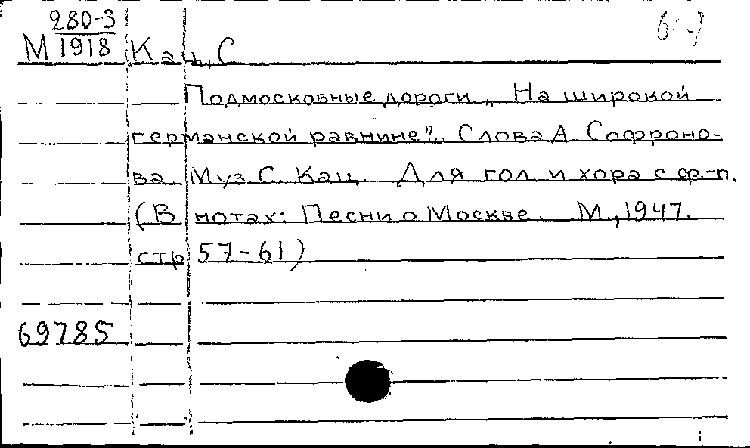 280-3
М 1918 Кац, С
Подмосковные дороги „На широкой
германской равнине". Слова А. Софроно-
ва. Муз. С. Кац. Для гол. и хора с ф-п.
(В нотах: Песни о Москве. М., 1947.
стр 57-61)
69785